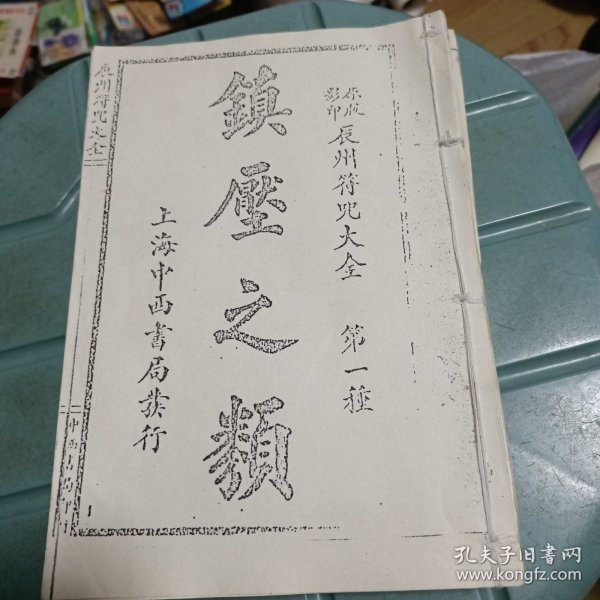 原版
影印
辰州符咒大全 第一種
鎮壓之類
上海中西書局發行
辰州符咒大全
中西書局印行
孔夫子旧书网
www.kongfz.com